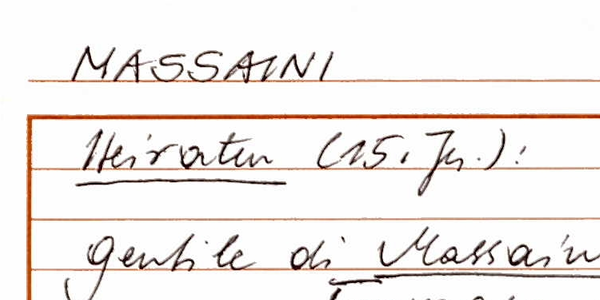 MASSAINI
Heiraten (15. Jh.):
Gentile di Massain